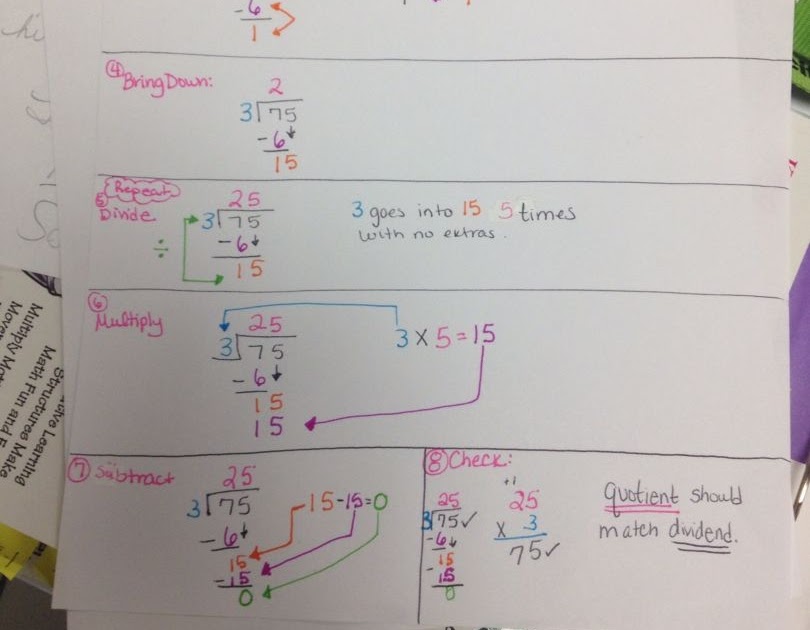 -6
1
④ Bring Down:
2
3 75
-6
15
Repeat
5 Divide
÷
25
3 75
-6
15
3 goes into 15 5 times
with no extras.
⑥ Multiply
25
3 75
-6
15
15
3 x 5 = 15
⑦ Subtract
25
3 75
-6
15
-15
0
15-15=0
⑧ Check:
25
3 75✓
-6
15
-15
0
+1
25
x 3
75✓
quotient should
match dividend.
Multiply
Math Fun and
Structures Make
Learning